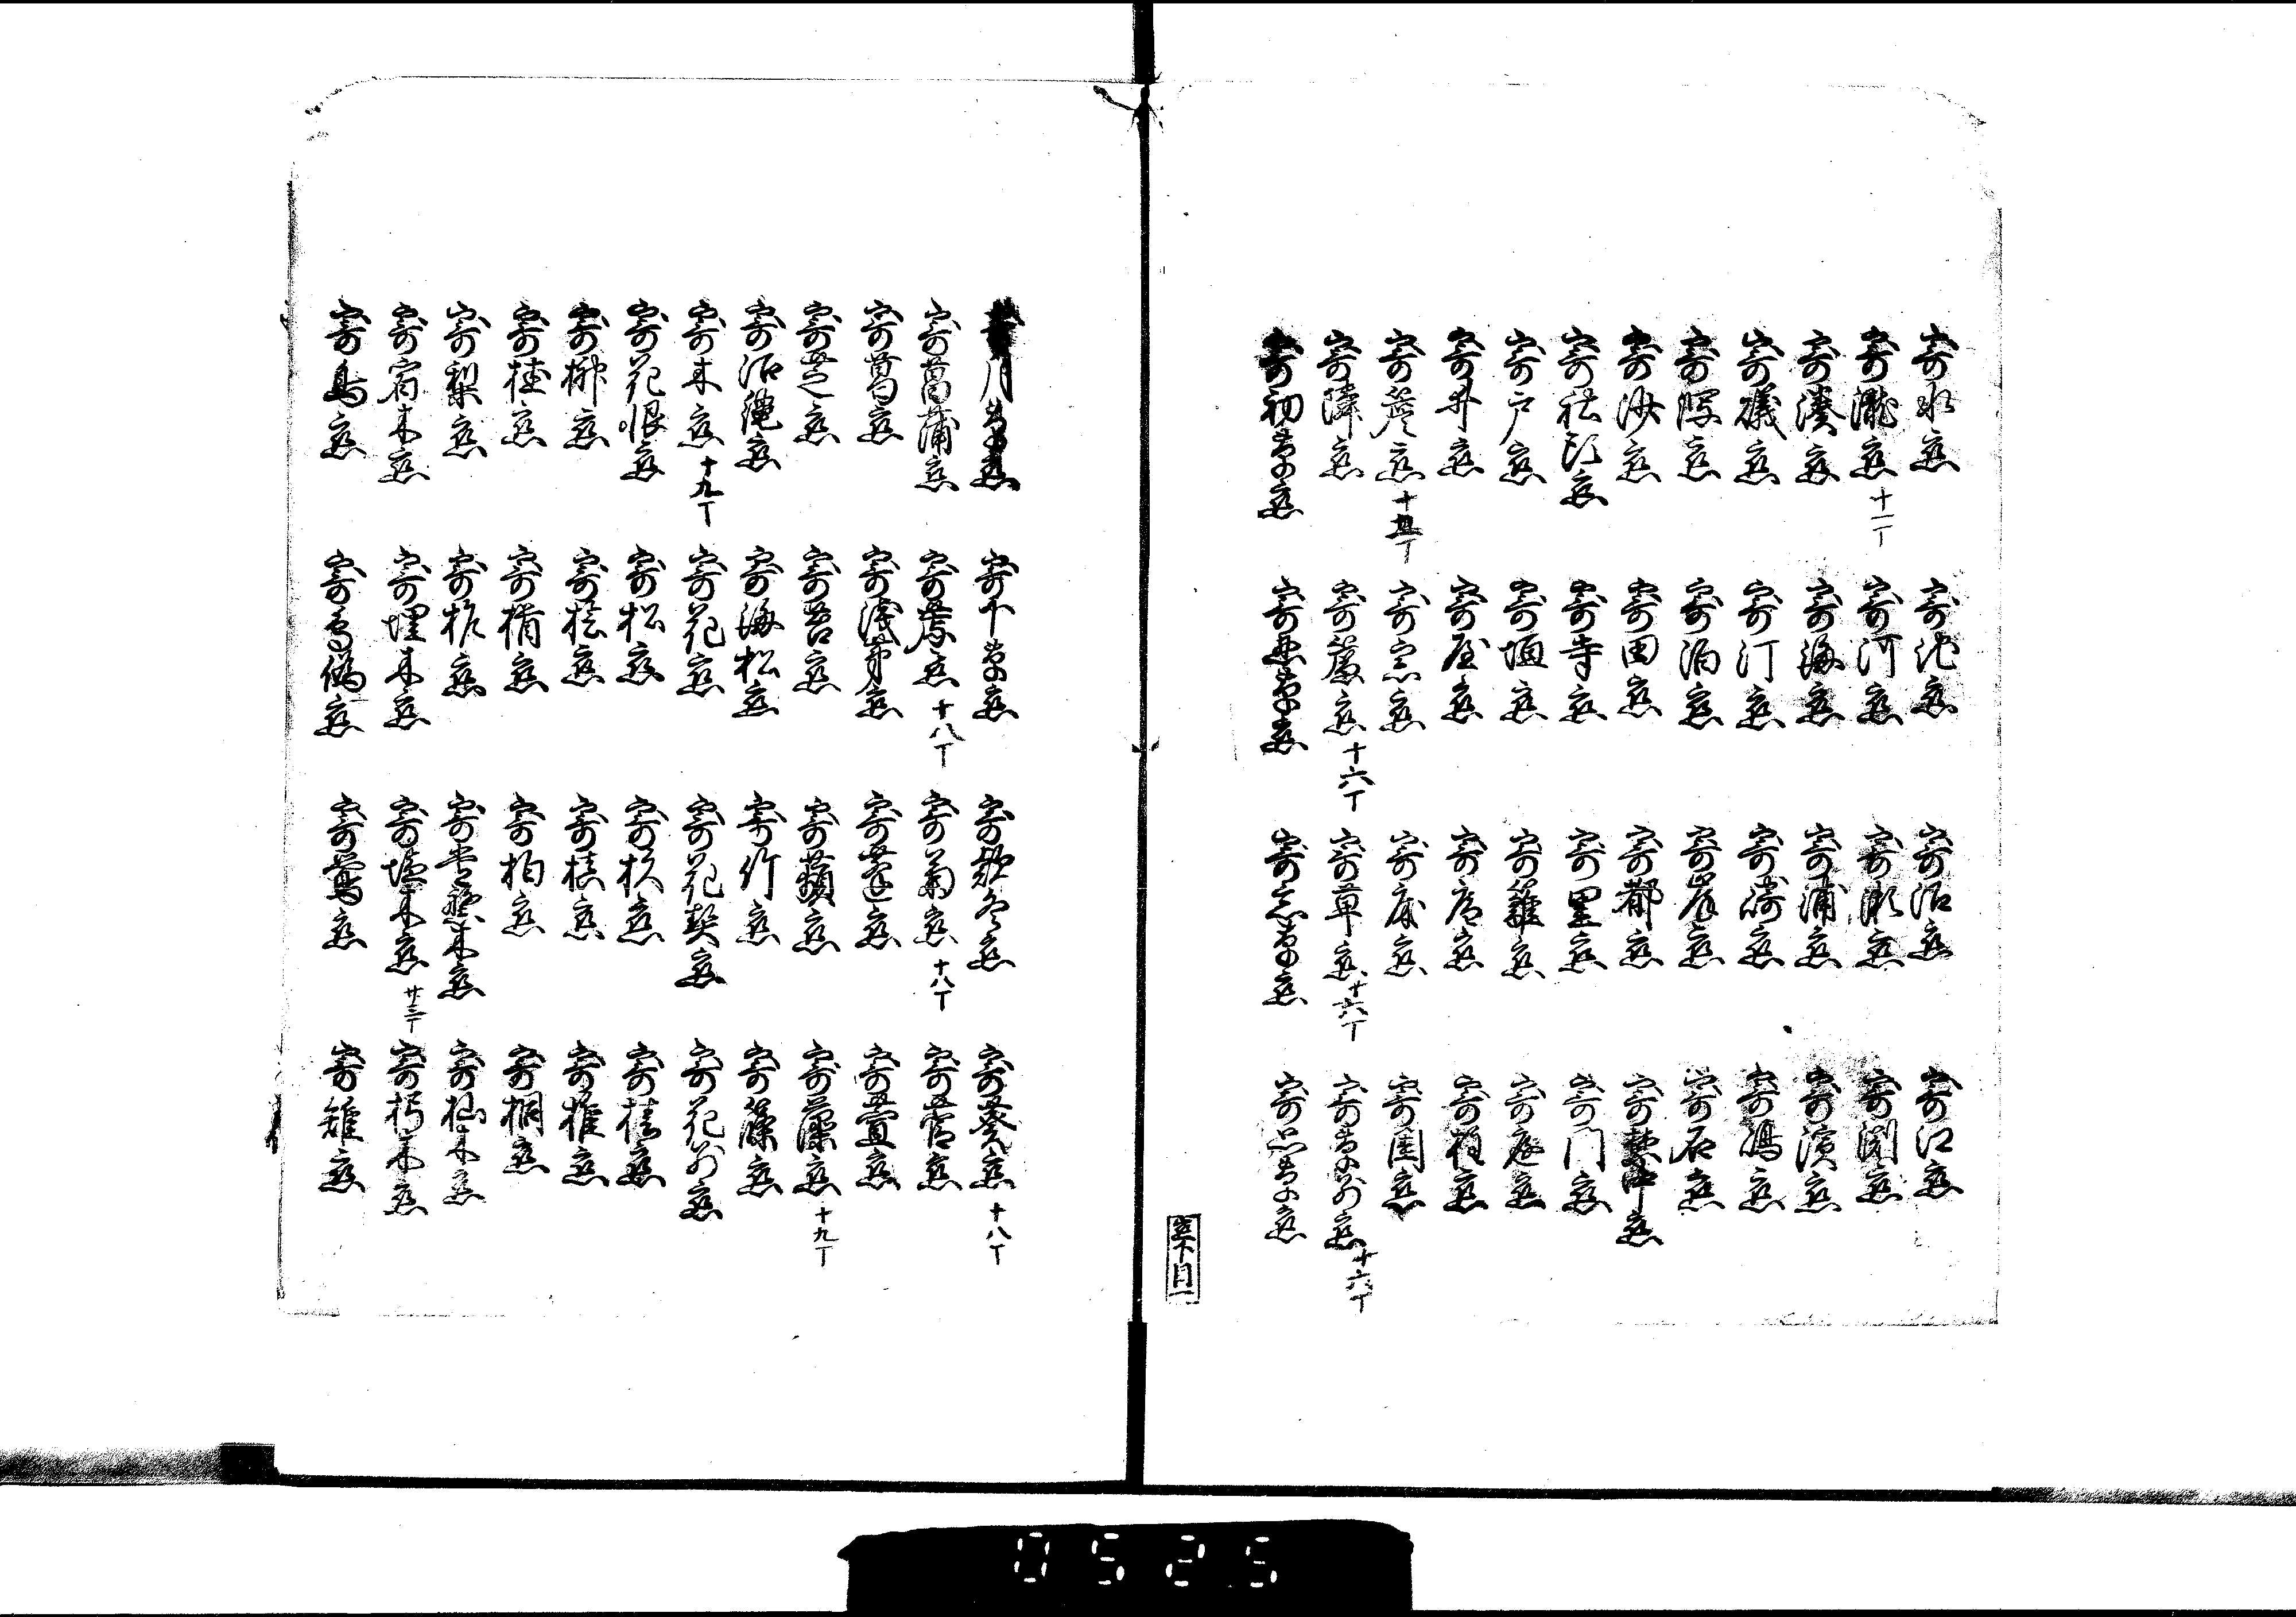 寄水恋 寄池恋 寄沼恋 寄江恋
寄瀧恋十一丁 寄河恋 寄瀬恋 寄渕恋
寄湊恋 寄海恋 寄浦恋 寄濱恋
寄礒恋 寄汀恋 寄嶋恋
寄泊恋 寄岸恋 寄石恋
寄沙恋 寄田恋 寄都恋 寄禁中恋
寄社頭恋 寄寺恋 寄里恋 寄門恋
寄戸恋 寄垣恋 寄籬恋 寄庭恋
寄井恋 寄屋恋 寄床恋 寄柱恋
寄簷恋 寄窓恋 寄扉恋 寄閨恋
寄簾恋十六丁 寄草恋十六丁 寄草別恋十六丁
寄初草恋 寄忘草恋
月草恋 寄下草恋 寄款冬恋 寄葵恋十八丁
寄菖蒲恋 十八丁 寄菊恋十八丁 寄菅恋
寄葛恋 寄浅茅恋 寄蓬恋 寄萱恋
寄芝恋 寄苔恋 寄蘋恋 寄藻恋十九丁
寄沼縄恋 寄海松恋 寄竹恋 寄篠恋
寄木恋十九丁 寄花恋 寄花契恋 寄花別恋
寄花恨恋 寄松恋 寄杉恋 寄桂恋
寄柳恋 寄桧恋 寄槙恋 寄椎恋
寄楢恋 寄柏恋 寄桐恋
寄梨恋 寄常盤木恋 寄杣木恋
寄宿木恋 寄埋木恋 寄塩木恋廿三丁 寄朽木恋
寄鳥恋 寄鳥偽恋 寄鶯恋 寄雉恋
恋下目一
0525